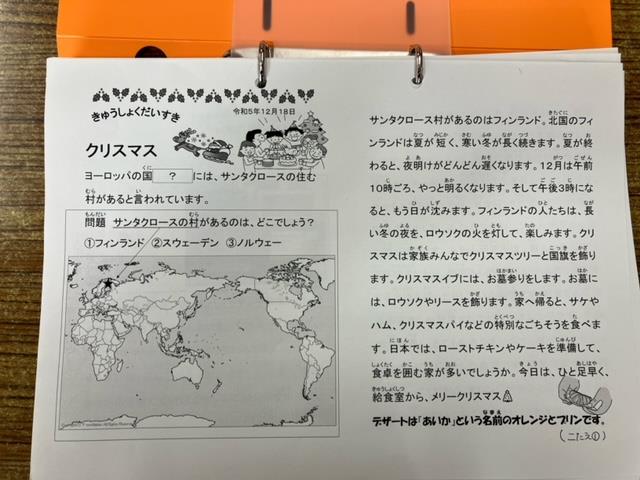 きゅうしょくだいすき
令和5年12月18日
クリスマス
ヨーロッパの国 ? には、サンタクロースの住む
村があると言われています。
問題 サンタクロースの村があるのは、どこでしょう?
①フィンランド ②スウェーデン ③ノルウェー
サンタクロース村があるのはフィンランド。北国のフィ
ンランドは夏が短く、寒い冬が長く続きます。夏が終
わると、夜明けがどんどん遅くなります。12月は午前
10時ごろ、やっと明るくなります。そして午後3時にな
ると、もう日が沈みます。フィンランドの人たちは、長
い冬の夜を、ロウソクの火を灯して、楽しみます。クリ
スマスは家族みんなでクリスマスツリーと国旗を飾り
ます。クリスマスイブには、お墓参りをします。お墓に
は、ロウソクやリースを飾ります。家へ帰ると、サケや
ハム、クリスマスパイなどの特別なごちそうを食べま
す。日本では、ローストチキンやケーキを準備して、
食卓を囲む家が多いでしょうか。今日は、ひと足早く、
給食室から、メリークリスマス
デザートは「あいか」という名前のオレンジとプリンです。
(こたえ①)